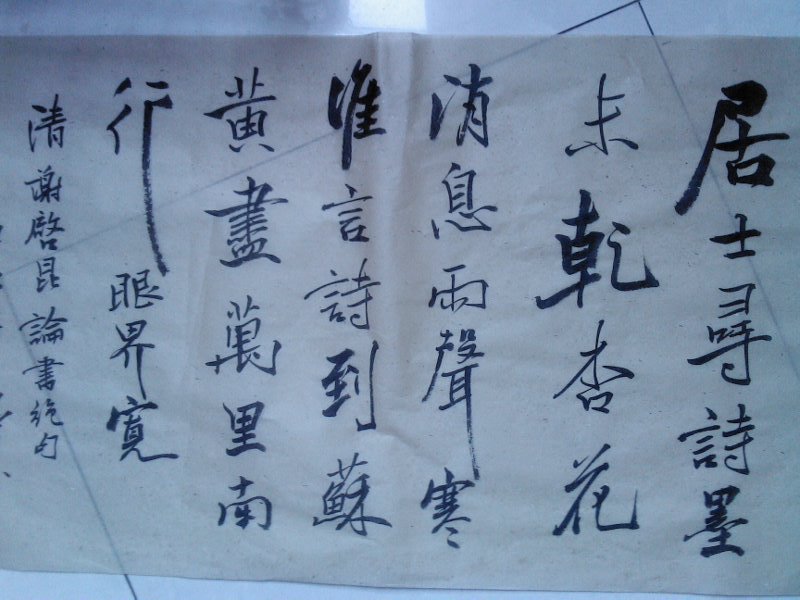 居士尋詩墨
未乾杏花
消息雨聲寒
誰言詩到蘇
黃盡萬里南
行眼界寬
清謝啓昆論書絕句